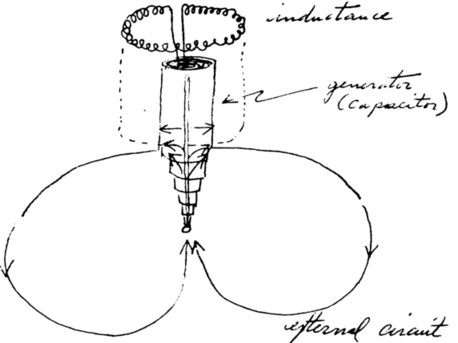 inductance
generator
(capacitor)
external circuit